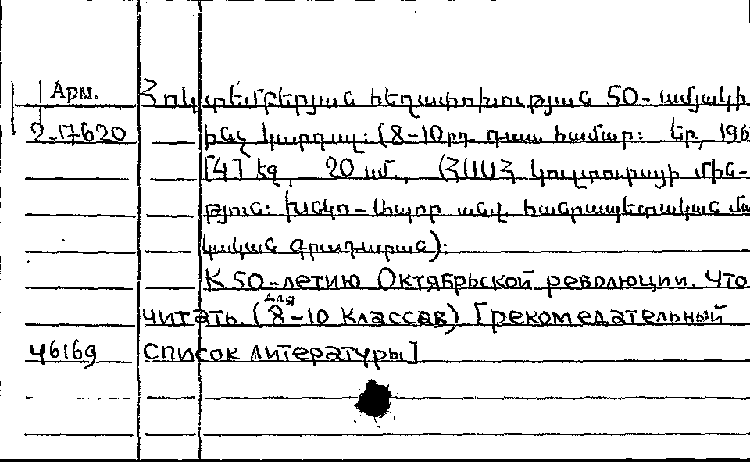 Арм. Հոկտեմբերյան հեղափոխության 50-ամյակի
2-17620 ինչ կարդալ: (8-10րդ. դաս. համար: Եր, 196
[4] էջ 20 սմ., (ՀՍՍՀ կուլտուրայի մին-
թյուն: Խնկո-Ապոր անվ. հանրապետական մա
կական գրադարան):
К 50-летию Октябрьской революции. Что
читать. (для 8-10 классов) [рекомедательный
46169 список литературы]